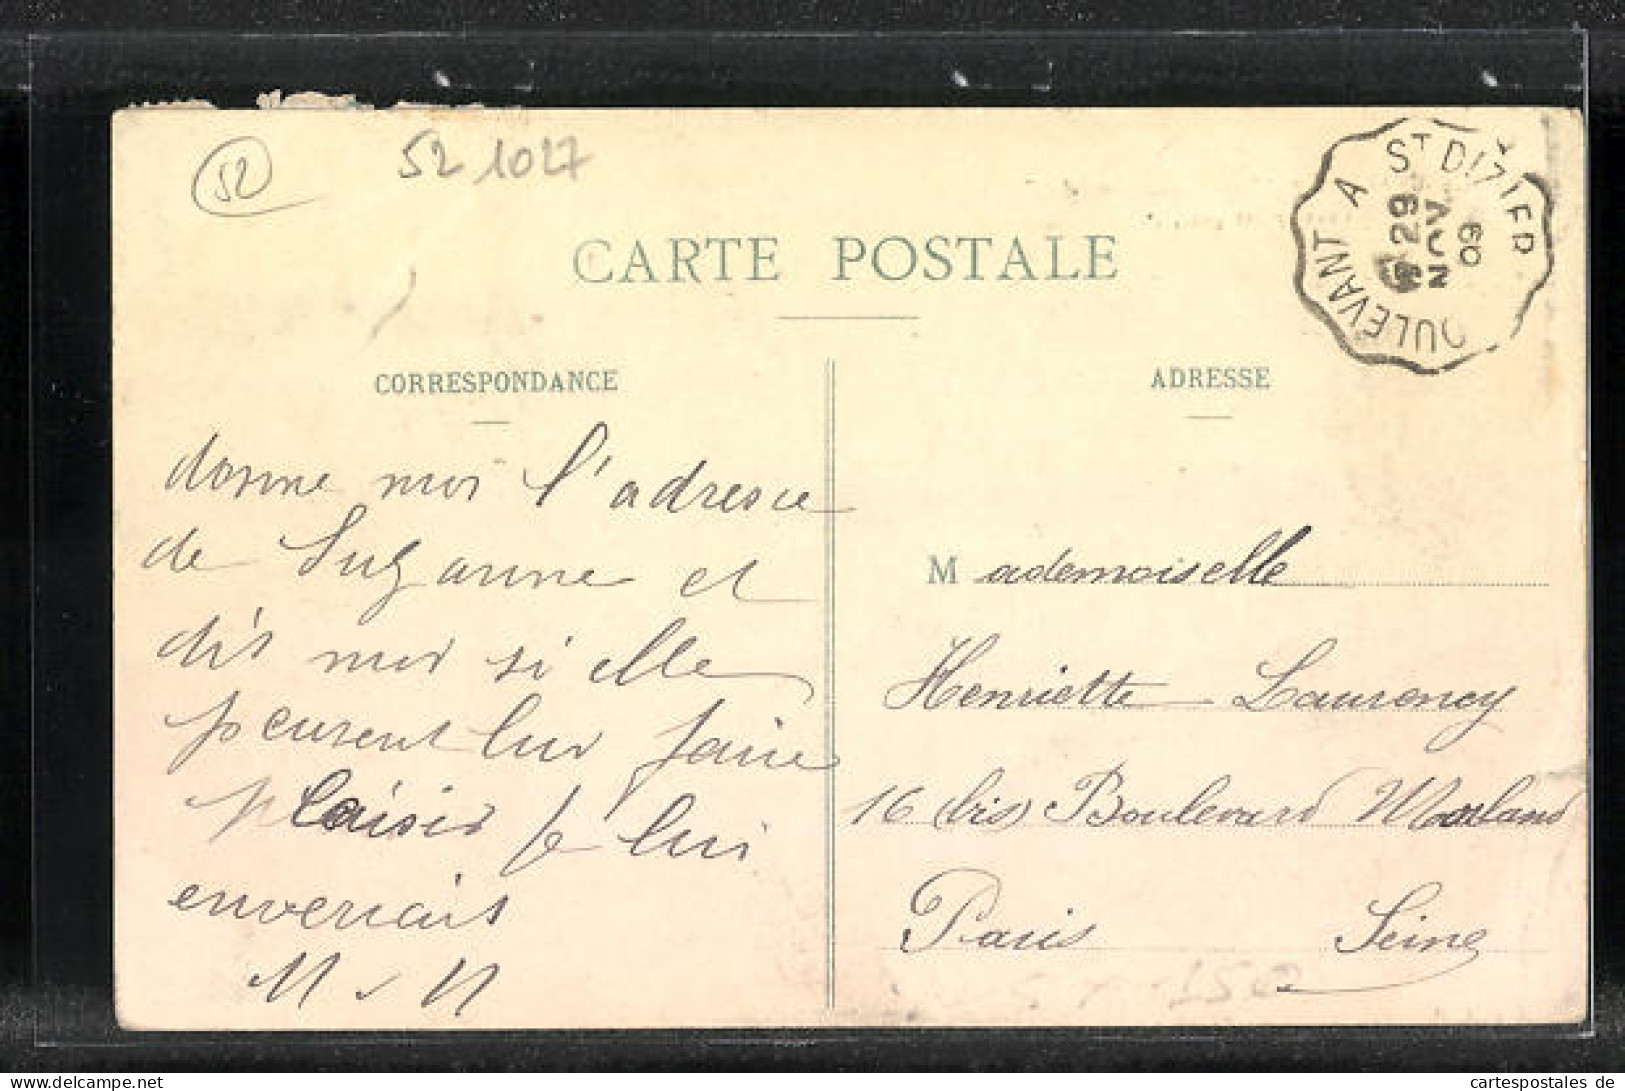 52
52 1027
DOULEVANT A ST DIZIER
29
NOV
09
CARTE POSTALE
CORRESPONDANCE
ADRESSE
donne moi l'adresse
de Suzanne et
dis moi si elle
peuvent lui faire
plaisir je lui
enverrais
M
Mademoiselle
Henriette Laurency
16 bis Boulevard Morland
Paris Seine
150
www.cartespostales.de
cartespostales de